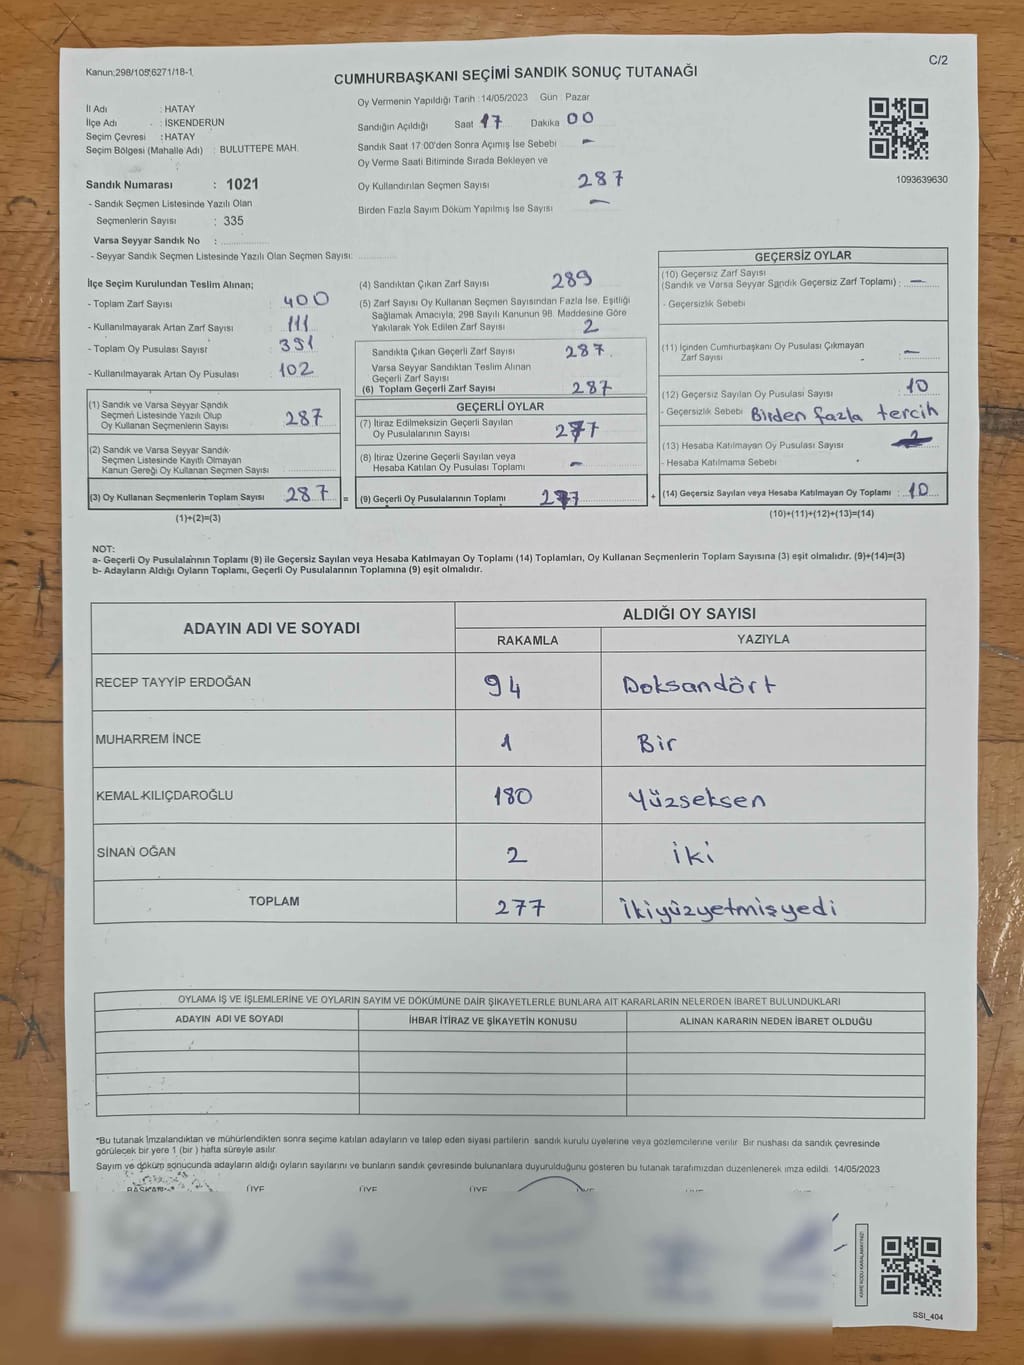 Kanun;298/105;6271/18-1
C/2
CUMHURBAŞKANI SEÇİMİ SANDIK SONUÇ TUTANAĞI
İl Adı : HATAY
İlçe Adı : İSKENDERUN
Seçim Çevresi : HATAY
Seçim Bölgesi (Mahalle Adı) : BULUTTEPE MAH.
Oy Vermenin Yapıldığı Tarih : 14/05/2023 Gün : Pazar
Sandığın Açıldığı Saat 17 Dakika 00
Sandık Saat 17:00'den Sonra Açımış İse Sebebi —
Oy Verme Saati Bitiminde Sırada Bekleyen ve
Oy Kullandırılan Seçmen Sayısı 287
Birden Fazla Sayım Döküm Yapılmış İse Sayısı —
1093639630
Sandık Numarası : 1021
- Sandık Seçmen Listesinde Yazılı Olan
Seçmenlerin Sayısı : 335
Varsa Seyyar Sandık No :
- Seyyar Sandık Seçmen Listesinde Yazılı Olan Seçmen Sayısı:
İlçe Seçim Kurulundan Teslim Alınan;
- Toplam Zarf Sayısı : 400
- Kullanılmayarak Artan Zarf Sayısı : 111
- Toplam Oy Pusulası Sayısı : 391
- Kullanılmayarak Artan Oy Pusulası : 102
(1) Sandık ve Varsa Seyyar Sandık
Seçmen Listesinde Yazılı Olup
Oy Kullanan Seçmenlerin Sayısı 287
(2) Sandık ve Varsa Seyyar Sandık
Seçmen Listesinde Kayıtlı Olmayan
Kanun Gereği Oy Kullanan Seçmen Sayısı
(3) Oy Kullanan Seçmenlerin Toplam Sayısı 287 =
(1)+(2)=(3)
(4) Sandıktan Çıkan Zarf Sayısı 289
(5) Zarf Sayısı Oy Kullanan Seçmen Sayısından Fazla İse, Eşitliği
Sağlamak Amacıyla, 298 Sayılı Kanunun 98. Maddesine Göre
Yakılarak Yok Edilen Zarf Sayısı 2
Sandıkta Çıkan Geçerli Zarf Sayısı 287
Varsa Seyyar Sandıktan Teslim Alınan
Geçerli Zarf Sayısı
(6) Toplam Geçerli Zarf Sayısı 287
GEÇERLİ OYLAR
(7) İtiraz Edilmeksizin Geçerli Sayılan
Oy Pusulalarının Sayısı 277
(8) İtiraz Üzerine Geçerli Sayılan veya
Hesaba Katılan Oy Pusulası Toplamı —
(9) Geçerli Oy Pusulalarının Toplamı 277 +
GEÇERSİZ OYLAR
(10) Geçersiz Zarf Sayısı
(Sandık ve Varsa Seyyar Sandık Geçersiz Zarf Toplamı) : —
- Geçersizlik Sebebi
(11) İçinden Cumhurbaşkanı Oy Pusulası Çıkmayan
Zarf Sayısı : —
(12) Geçersiz Sayılan Oy Pusulası Sayısı : 10
- Geçersizlik Sebebi Birden fazla tercih
(13) Hesaba Katılmayan Oy Pusulası Sayısı
- Hesaba Katılmama Sebebi
(14) Geçersiz Sayılan veya Hesaba Katılmayan Oy Toplamı : 10
(10)+(11)+(12)+(13)=(14)
NOT:
a- Geçerli Oy Pusulalarının Toplamı (9) ile Geçersiz Sayılan veya Hesaba Katılmayan Oy Toplamı (14) Toplamları, Oy Kullanan Seçmenlerin Toplam Sayısına (3) eşit olmalıdır. (9)+(14)=(3)
b- Adayların Aldığı Oyların Toplamı, Geçerli Oy Pusulalarının Toplamına (9) eşit olmalıdır.
ADAYIN ADI VE SOYADI
ALDIĞI OY SAYISI
RAKAMLA YAZIYLA
RECEP TAYYİP ERDOĞAN 94 Doksandört
MUHARREM İNCE 1 Bir
KEMAL KILIÇDAROĞLU 180 Yüzseksen
SİNAN OĞAN 2 İki
TOPLAM 277 İkiyüzyetmişyedi
OYLAMA İŞ VE İŞLEMLERİNE VE OYLARIN SAYIM VE DÖKÜMÜNE DAİR ŞİKAYETLERLE BUNLARA AİT KARARLARIN NELERDEN İBARET BULUNDUKLARI
ADAYIN ADI VE SOYADI İHBAR İTİRAZ VE ŞİKAYETİN KONUSU ALINAN KARARIN NEDEN İBARET OLDUĞU
*Bu tutanak İmzalandıktan ve mühürlendikten sonra seçime katılan adayların ve talep eden siyasi partilerin sandık kurulu üyelerine veya gözlemcilerine verilir. Bir nushası da sandık çevresinde
görülecek bir yere 1 (bir ) hafta süreyle asılır.
Sayım ve döküm sonucunda adayların aldığı oyların sayılarını ve bunların sandık çevresinde bulunanlara duyurulduğunu gösteren bu tutanak tarafımızdan düzenlenerek imza edildi. 14/05/2023
BAŞKAN ÜYE ÜYE ÜYE
KARE KODU KARALAMAYINIZ!
SSI_404